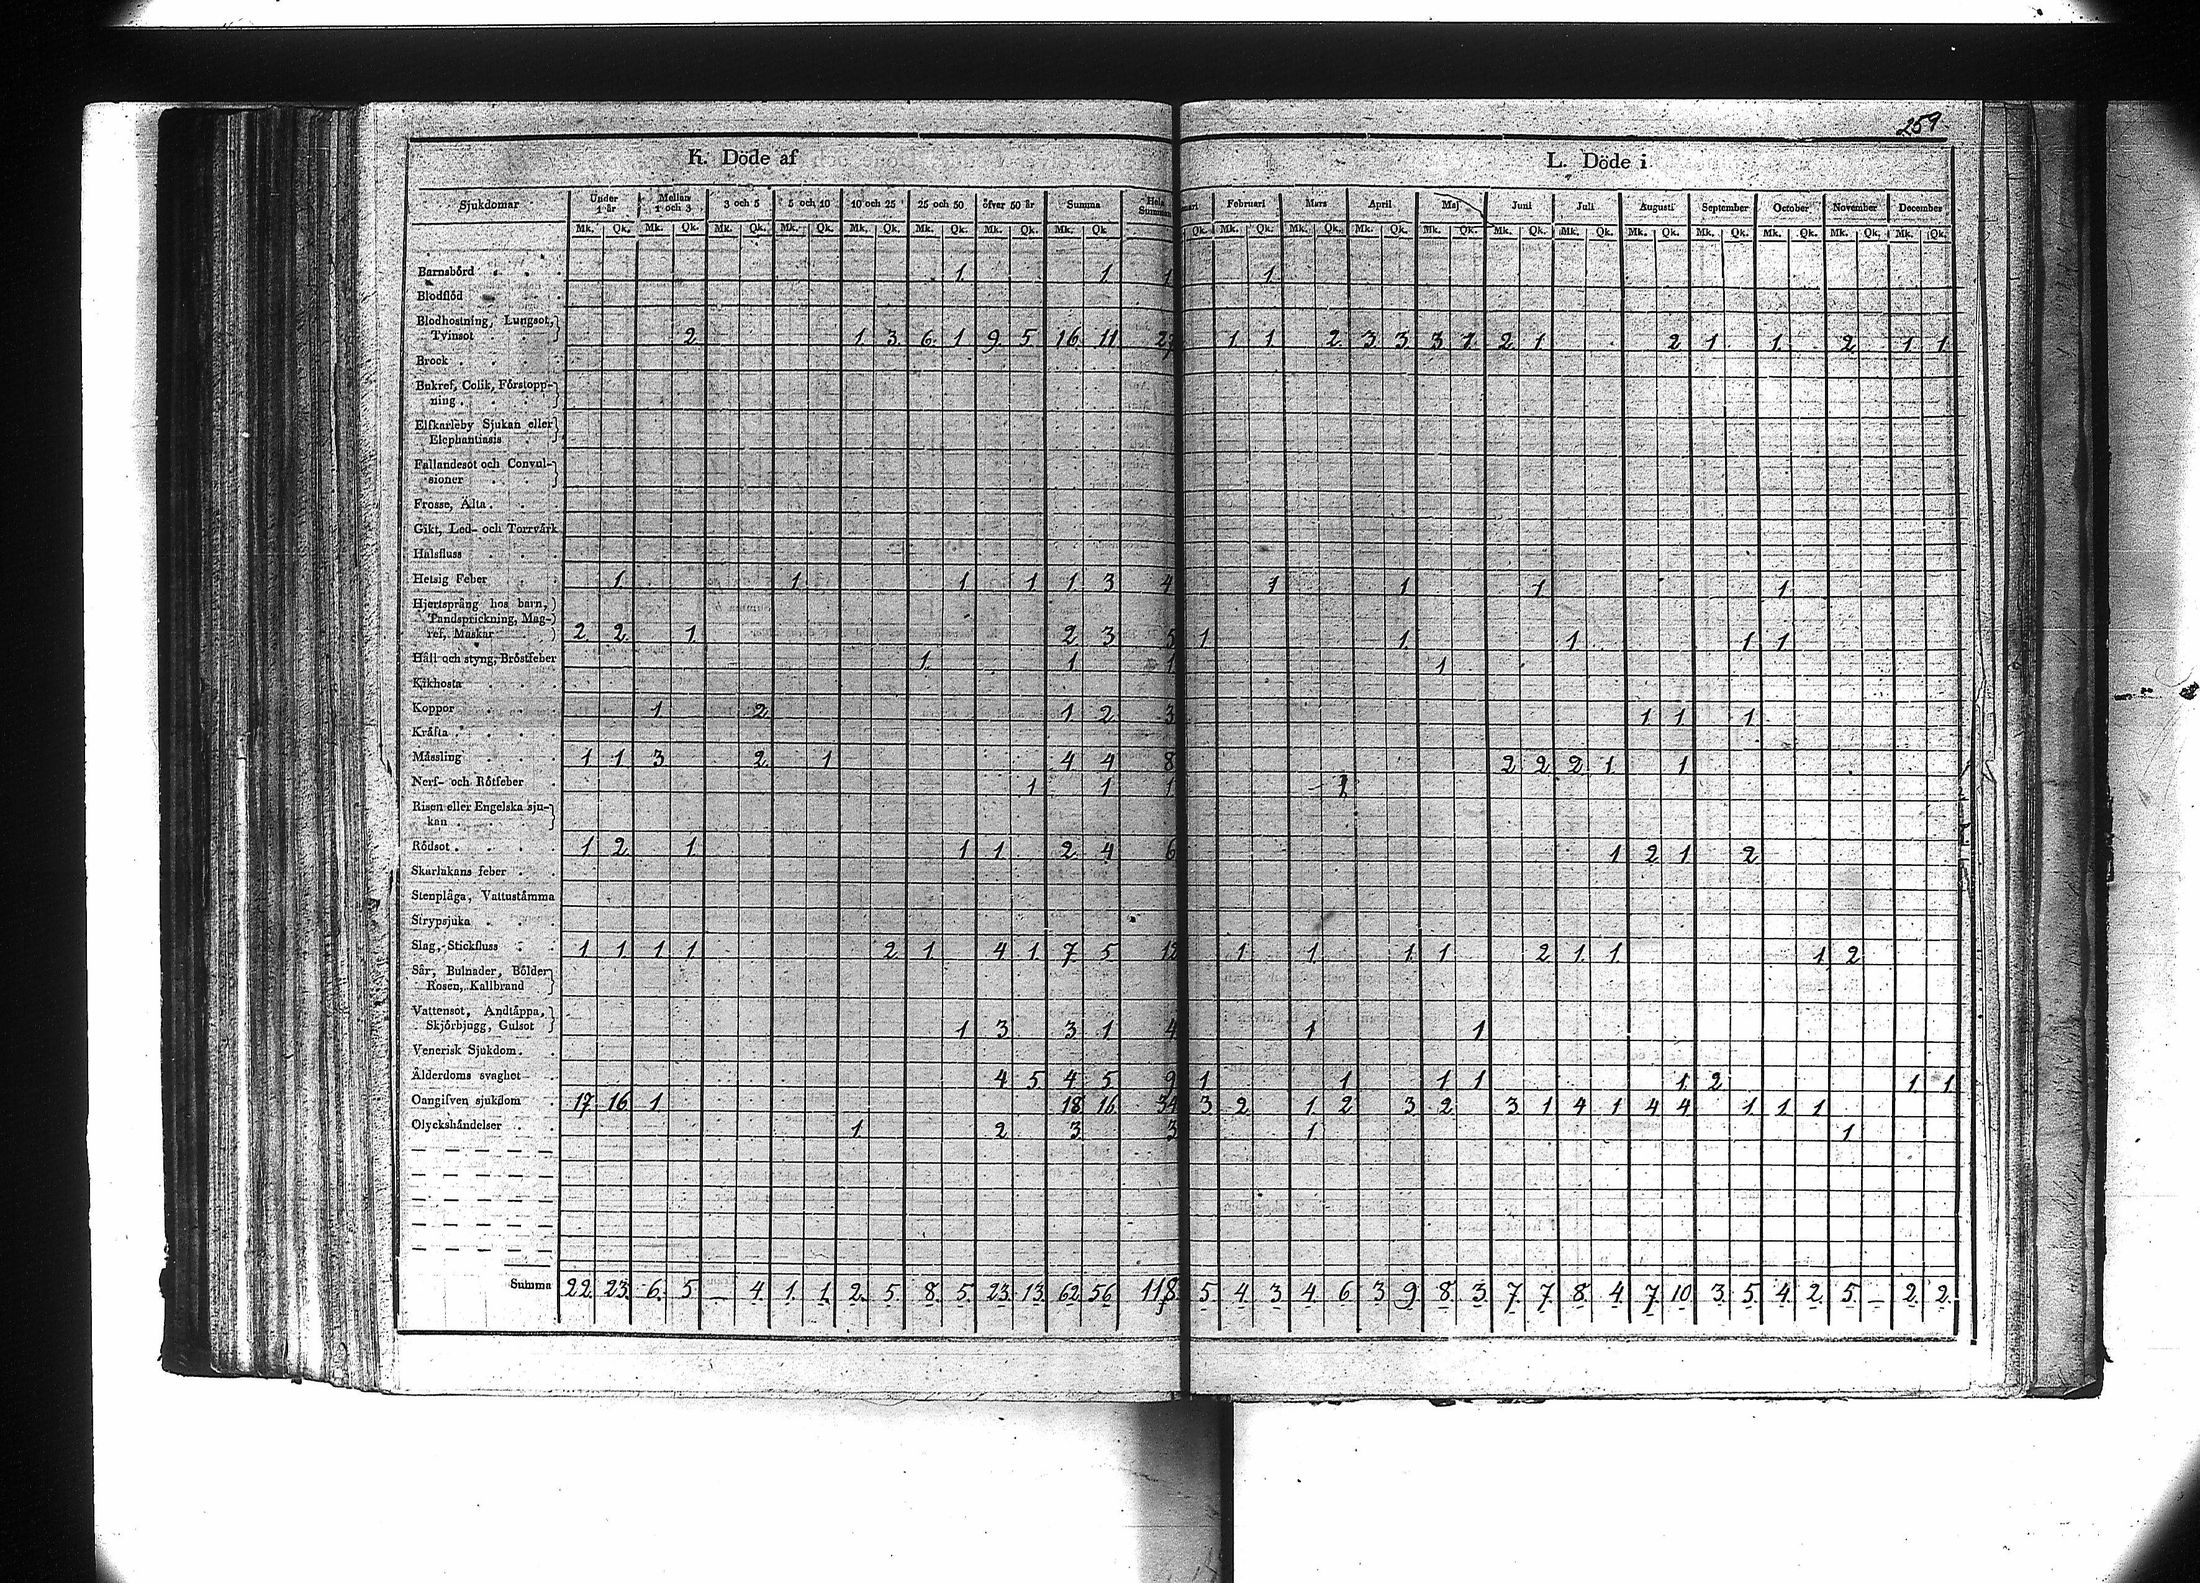 259
K. Döde af L. Döde i
Sjukdomar Under 1 år Mellan 1 och 3 3 och 5 5 och 10 10 och 25 25 och 50 öfver 50 år Summa Hela Summan Februari Mars April Maj Juni Juli Augusti September October November December
Mk. Qk. Mk. Qk. Mk. Qk. Mk. Qk. Mk. Qk. Mk. Qk. Mk. Qk. Mk. Qk. Qk. Mk. Qk. Mk. Qk. Mk. Qk. Mk. Qk. Mk. Qk. Mk. Qk. Mk. Qk. Mk. Qk. Mk. Qk. Mk. Qk. Mk. Qk.
Barnsbörd 1 1 1 1
Blodflöd
Blodhostning, Lungsot,
Tvinsot 2 1 3 6 1 9 5 16 11 27 1 1 2 3 3 3 1 2 1 2 1 1 2 1 1
Brock
Bukref, Colik, Förstopp-
ning
Elfkarleby Sjukan eller
Elephantiasis
Fallandesot och Convul-
sioner
Frosse, Älta
Gikt, Led- och Torrvärk
Halsfluss
Hetsig Feber 1 1 1 1 1 3 4 1 1 1 1
Hjertsprång hos barn,
Tandsprickning, Mag-
ref, Maskar 2 2 1 2 3 5 1 1 1 1 1
Håll och styng, Bröstfeber 1 1 1 1
Kikhosta
Koppor 1 2 1 2 3 1 1 1
Kräfta
Mässling 1 1 3 2 1 4 4 8 2 2 2 1 1
Nerf- och Rötfeber 1 1 1 1
Risen eller Engelska sju-
kan
Rödsot 1 2 1 1 1 2 4 6 1 2 1 2
Skarlakans feber
Stenplåga, Vattustämma
Strypsjuka
Slag, Stickfluss 1 1 1 1 2 1 4 1 7 5 12 1 1 1 1 2 1 1 1 2
Sår, Bulnader, Bölder
Rosen, Kallbrand
Vattensot, Andtäppa,
Skjörbjugg, Gulsot 1 3 3 1 4 1 1
Venerisk Sjukdom
Ålderdoms svaghet 4 5 4 5 9 1 1 1 1 1 2 1 1
Oangifven sjukdom 17 16 1 18 16 34 3 2 1 2 3 2 3 1 4 1 4 4 1 1 1
Olyckshändelser 1 2 3 3 1 1
Summa 22 23 6 5 — 4 1 1 2 5 8 5 23 13 62 56 118 5 4 3 4 6 3 9 8 3 7 7 8 4 7 10 3 5 4 2 5 — 2 2